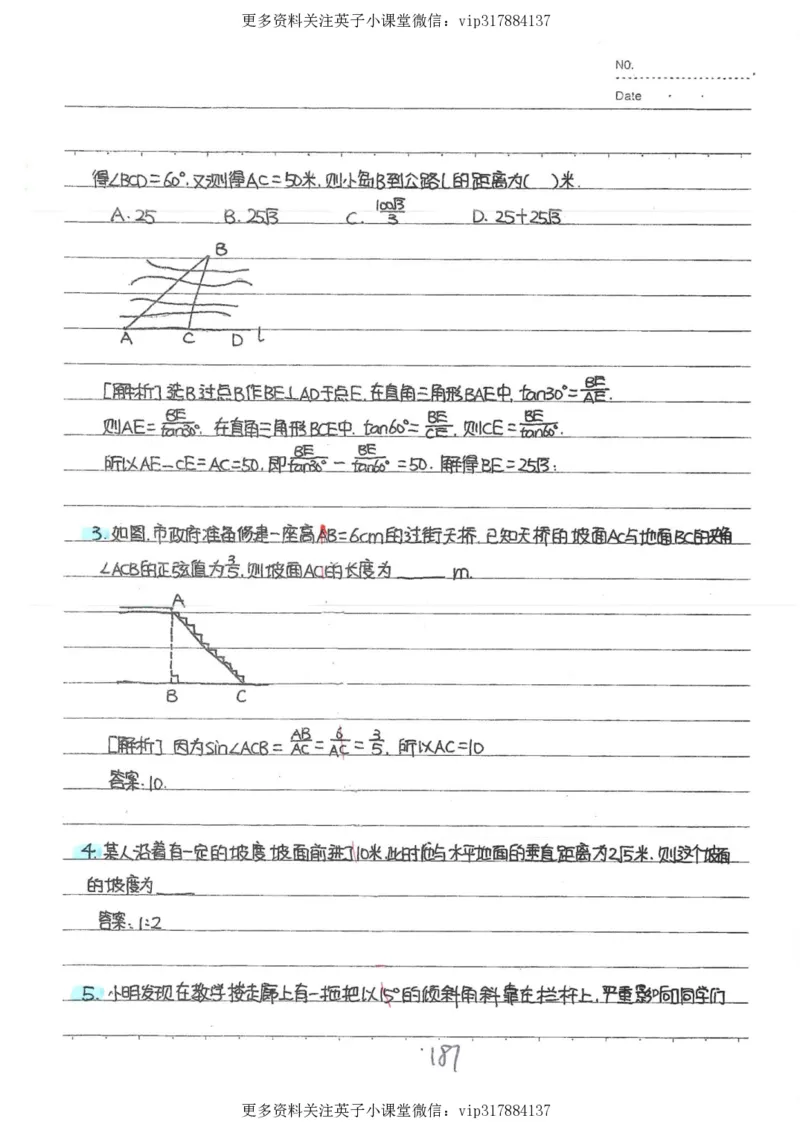 更多资料关注英子小课堂微信：vip317884137
NO.
Date
得∠BCD=60°,又测得AC=50米,则小岛B到公路l的距离为( )米.
A.25 B.25√3 C. 100√3/3 D. 25+25√3
B
A C D l
[解析]选B过点B作BE⊥AD于点E,在直角三角形BAE中, tan30°=BE/AE.
则AE=BE/tan30°. 在直角三角形BCE中. tan60°=BE/CE, 则CE=BE/tan60°.
所以AE-CE=AC=50,即BE/tan30° - BE/tan60° =50. 解得BE=25√3;
3.如图,市政府准备修建一座高AB=6cm的过街天桥,已知天桥的坡面AC与地面BC的夹角
∠ACB的正弦值为3/5,则坡面AC的长度为____ m.
A
B C
[解析] 因为sin∠ACB= AB/AC = 6/AC = 3/5, 所以AC=10
答案:10.
4.某人沿着有一定的坡度坡面前进了10米,此时他与水平地面的垂直距离为2√5米.则这个坡面
的坡度为____
答案:1:2
5.小明发现在教学楼走廊上有一拖把以15°的倾斜角斜靠在拦杆上,严重影响同学们
187
更多资料关注英子小课堂微信：vip317884137